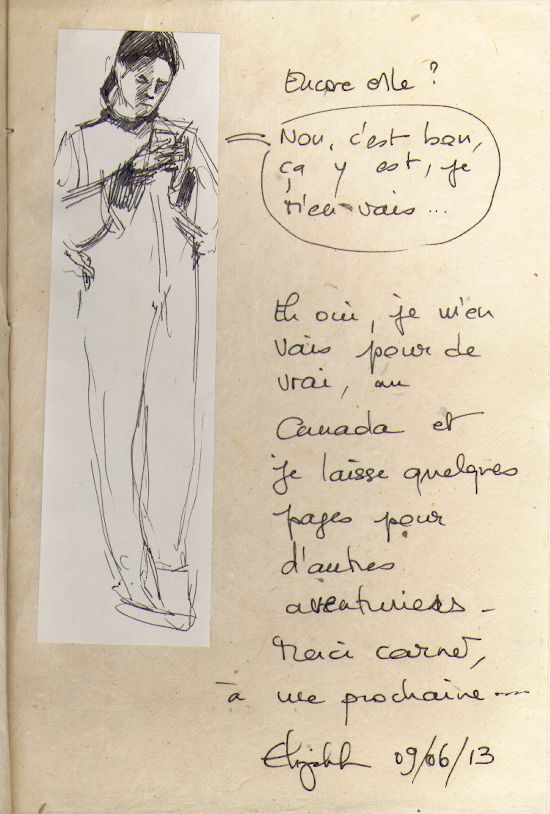 Encore elle ?
Non, c'est bon,
ça y est, je
m'en vais ...
Eh oui, je m'en
vais pour de
vrai, au
Canada et
je laisse quelques
pages pour
d'autres
aventuriers -
Merci carnet,
à une prochaine ----
Elizabeth 09/06/13